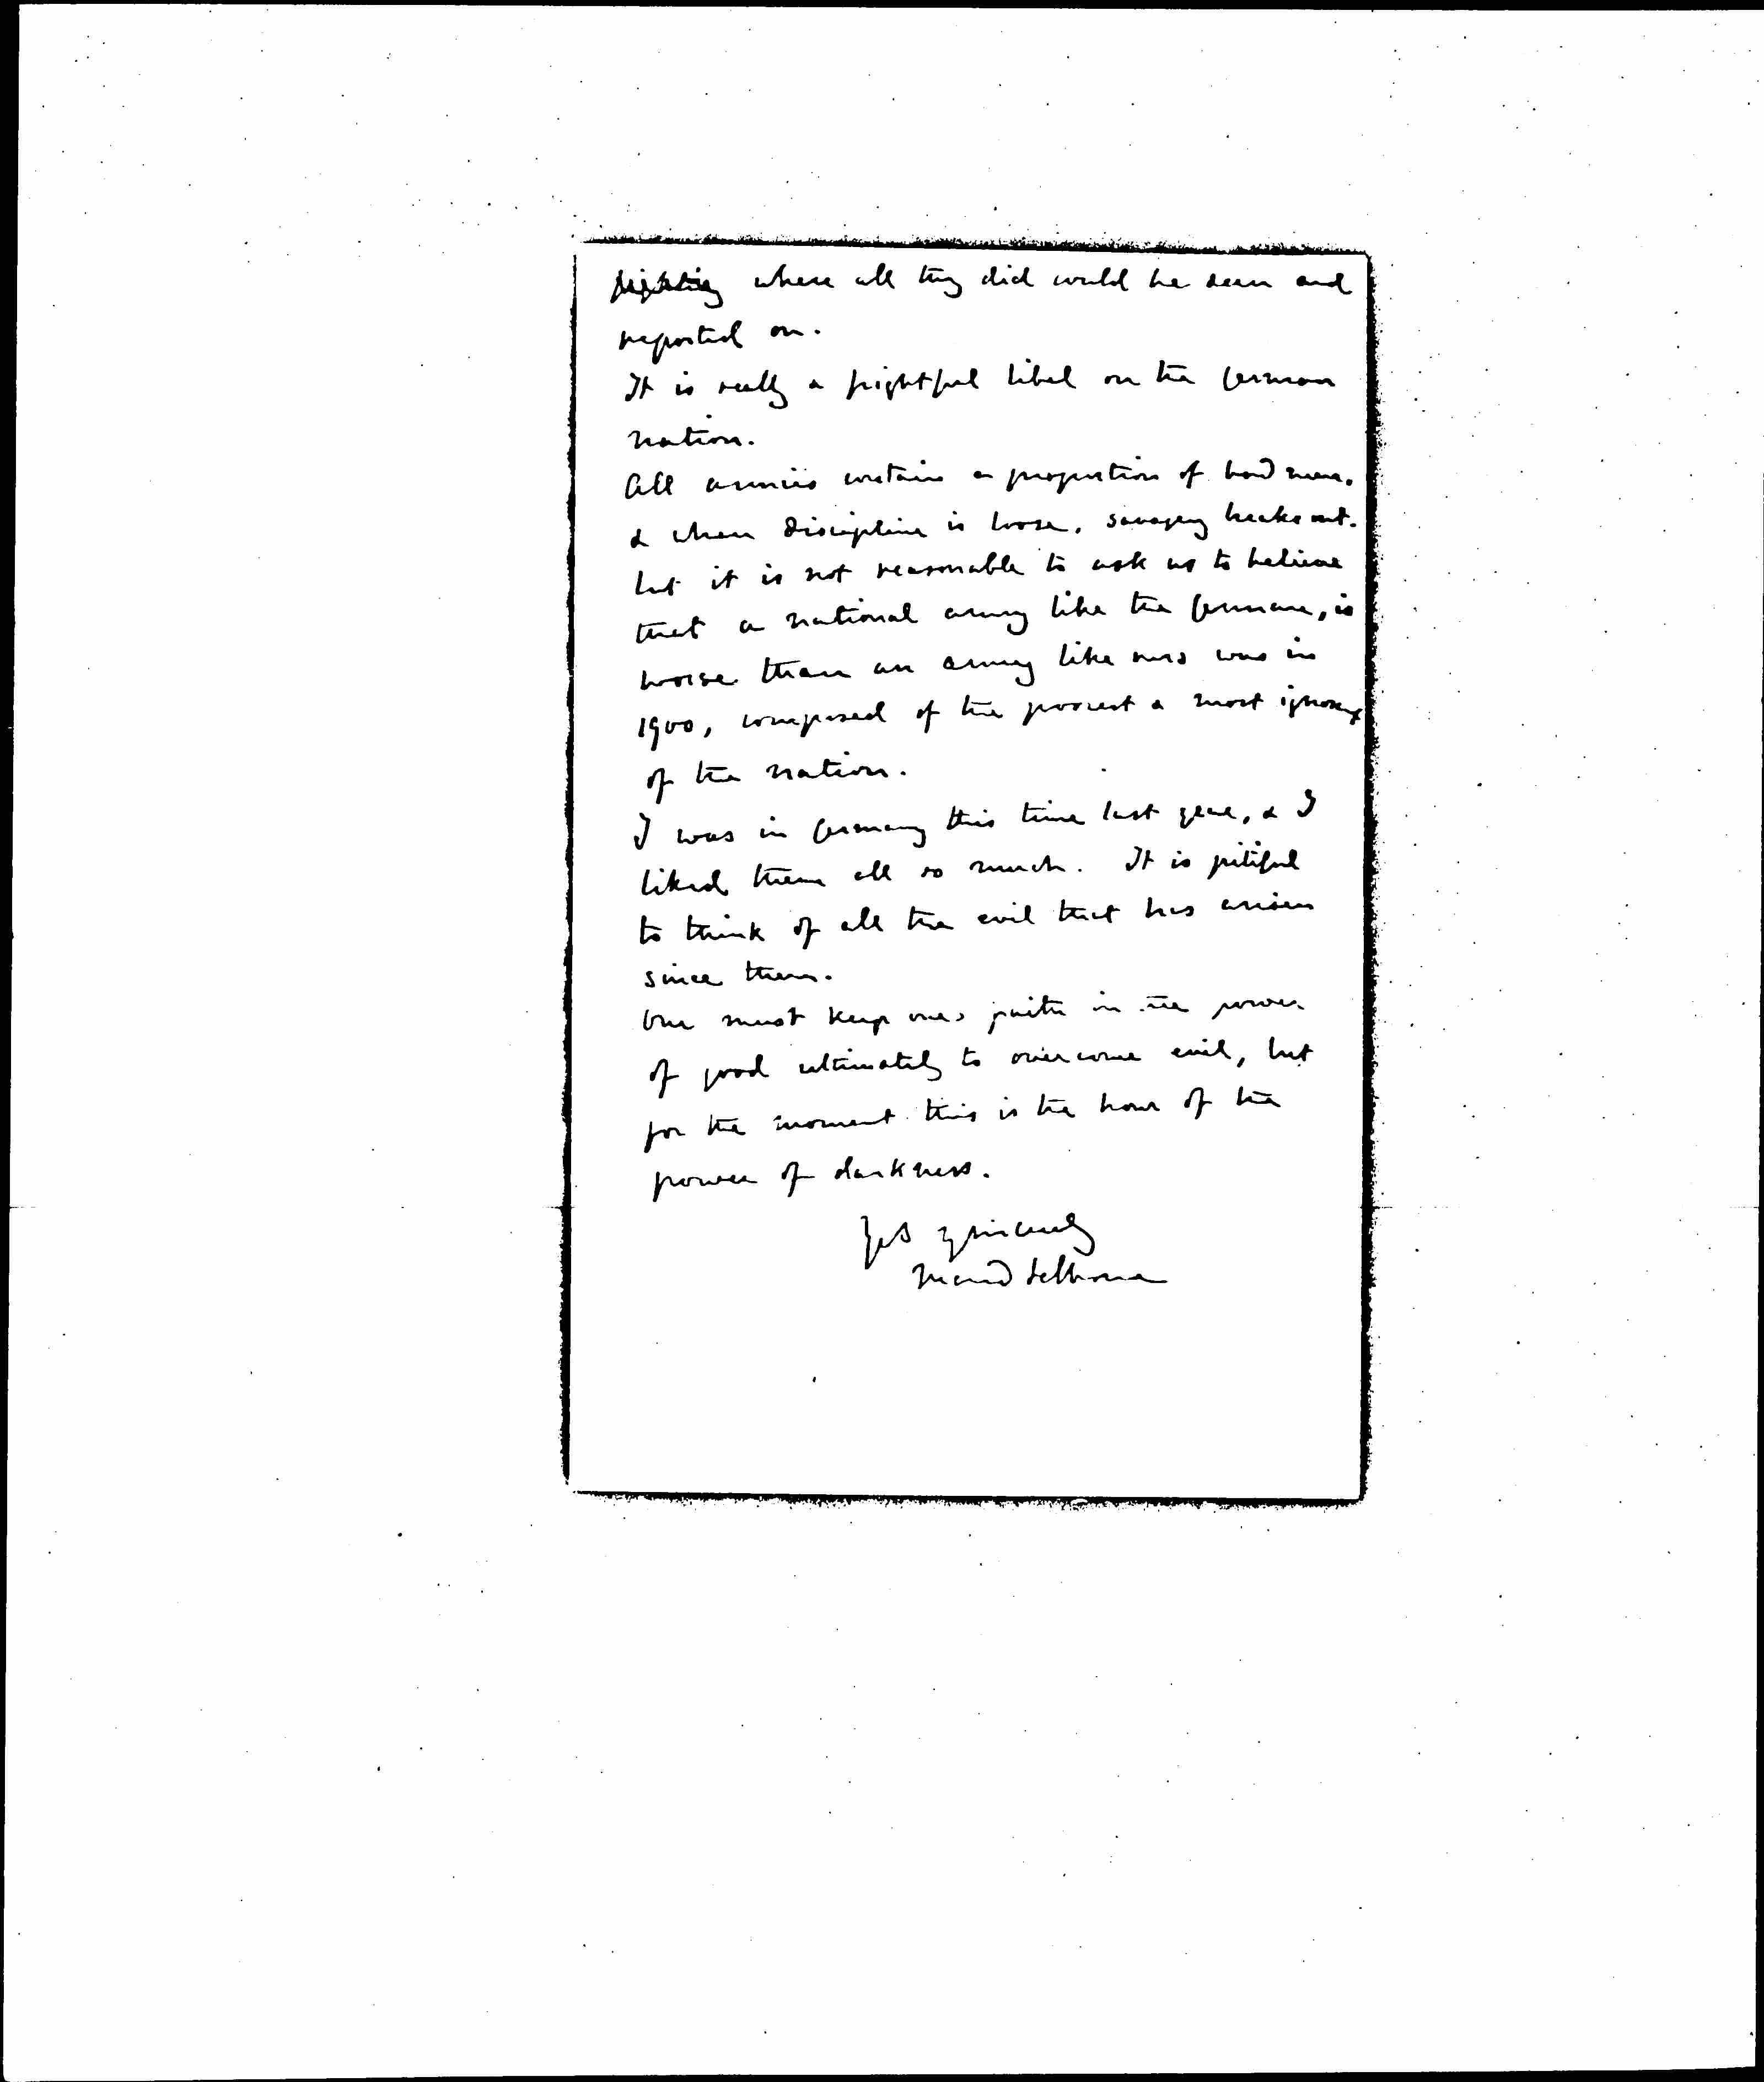 fighting where all they did would be seen and
reported on.
It is really a frightful libel on the German
nation.
All armies contain a proportion of bad men.
& when discipline is loose, savagery breaks out.
but it is not reasonable to ask us to believe
that a national army like the German, is
worse than an army like ours was in
1900, composed of the poorest & most ignorant
of the nation.
I was in Germany this time last year, & I
liked them all so much. It is pitiful
to think of all the evil that has arisen
since then.
One must keep ones faith in the power
of good ultimately to overcome evil, but
for the moment this is the hour of the
power of darkness.
Yrs sincerely
Maud Selborne